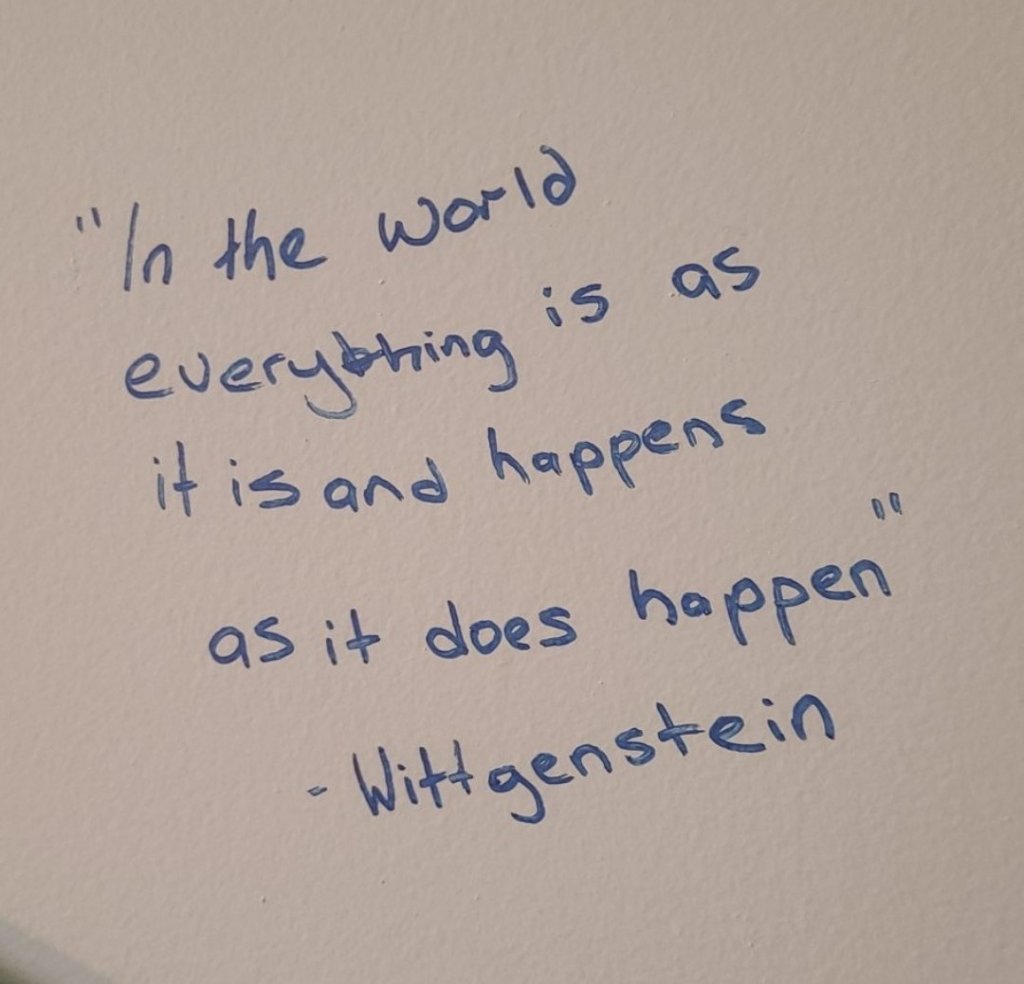 "In the world
everything is as
it is and happens
as it does happen"
- Wittgenstein